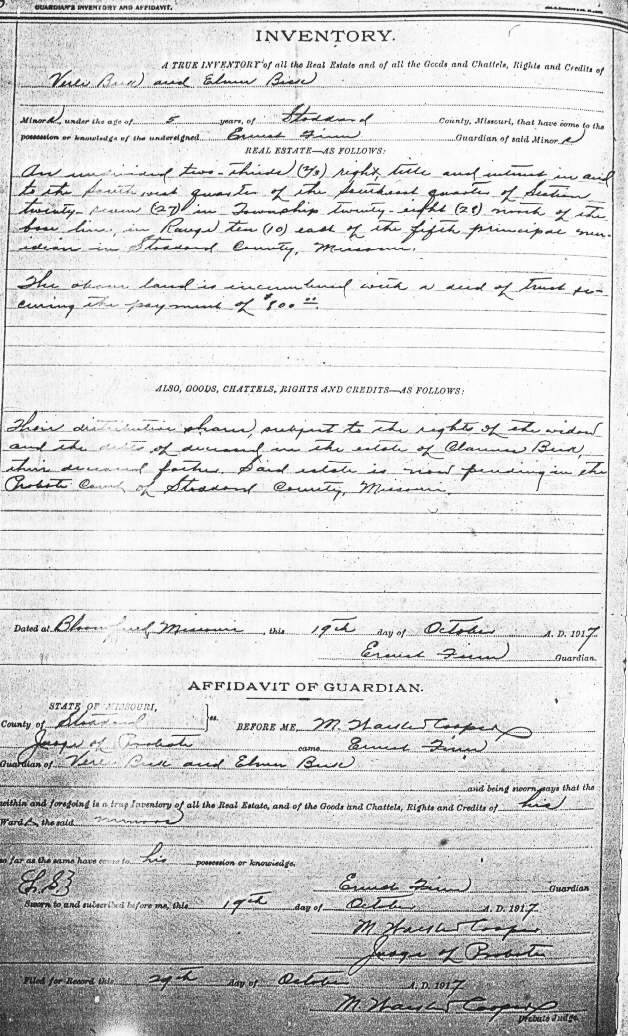 GUARDIAN'S INVENTORY AND AFFIDAVIT.
INVENTORY.
A TRUE INVENTORY of all the Real Estate and of all the Goods and Chattels, Rights and Credits of
and Elmer
Minors, under the age of 5 years, of Stoddard County, Missouri, that have come to the
possession or knowledge of the undersigned Ernest Finn Guardian of said Minors
REAL ESTATE—AS FOLLOWS:
An undivided two-thirds (2/3) right, title and interest in and
to the southwest quarter of the southeast quarter of Section
twenty-seven (27) in Township twenty-eight (28) north of the
base line, in Range ten (10) east of the fifth principal mer-
idian in Stoddard County, Missouri.
The above land is incumbered with a deed of trust se-
curing the payment of $800.00
ALSO, GOODS, CHATTELS, RIGHTS AND CREDITS—AS FOLLOWS:
Their distributive shares, subject to the rights of the widow
and the debts of deceased, in the estate of
their deceased father. Said estate is now pending in the
Probate Court of Stoddard County, Missouri.
Dated at Bloomfield, Missouri, this 19th day of October A. D. 1917
Ernest Finn Guardian.
AFFIDAVIT OF GUARDIAN.
STATE OF MISSOURI,
County of Stoddard } ss. BEFORE ME, M. Cooper
Judge of Probate came Ernest Finn
Guardian of and Elmer
and being sworn says that the
within and foregoing is a true Inventory of all the Real Estate, and of the Goods and Chattels, Rights and Credits of his
Wards, the said minors
so far as the same have come to his possession or knowledge.
Ernest Finn Guardian
Sworn to and subscribed before me, this 19th day of October A. D. 1917
M. Cooper
Judge of Probate
Filed for Record this 29th day of October A. D. 1917
M. Cooper
Probate Judge.